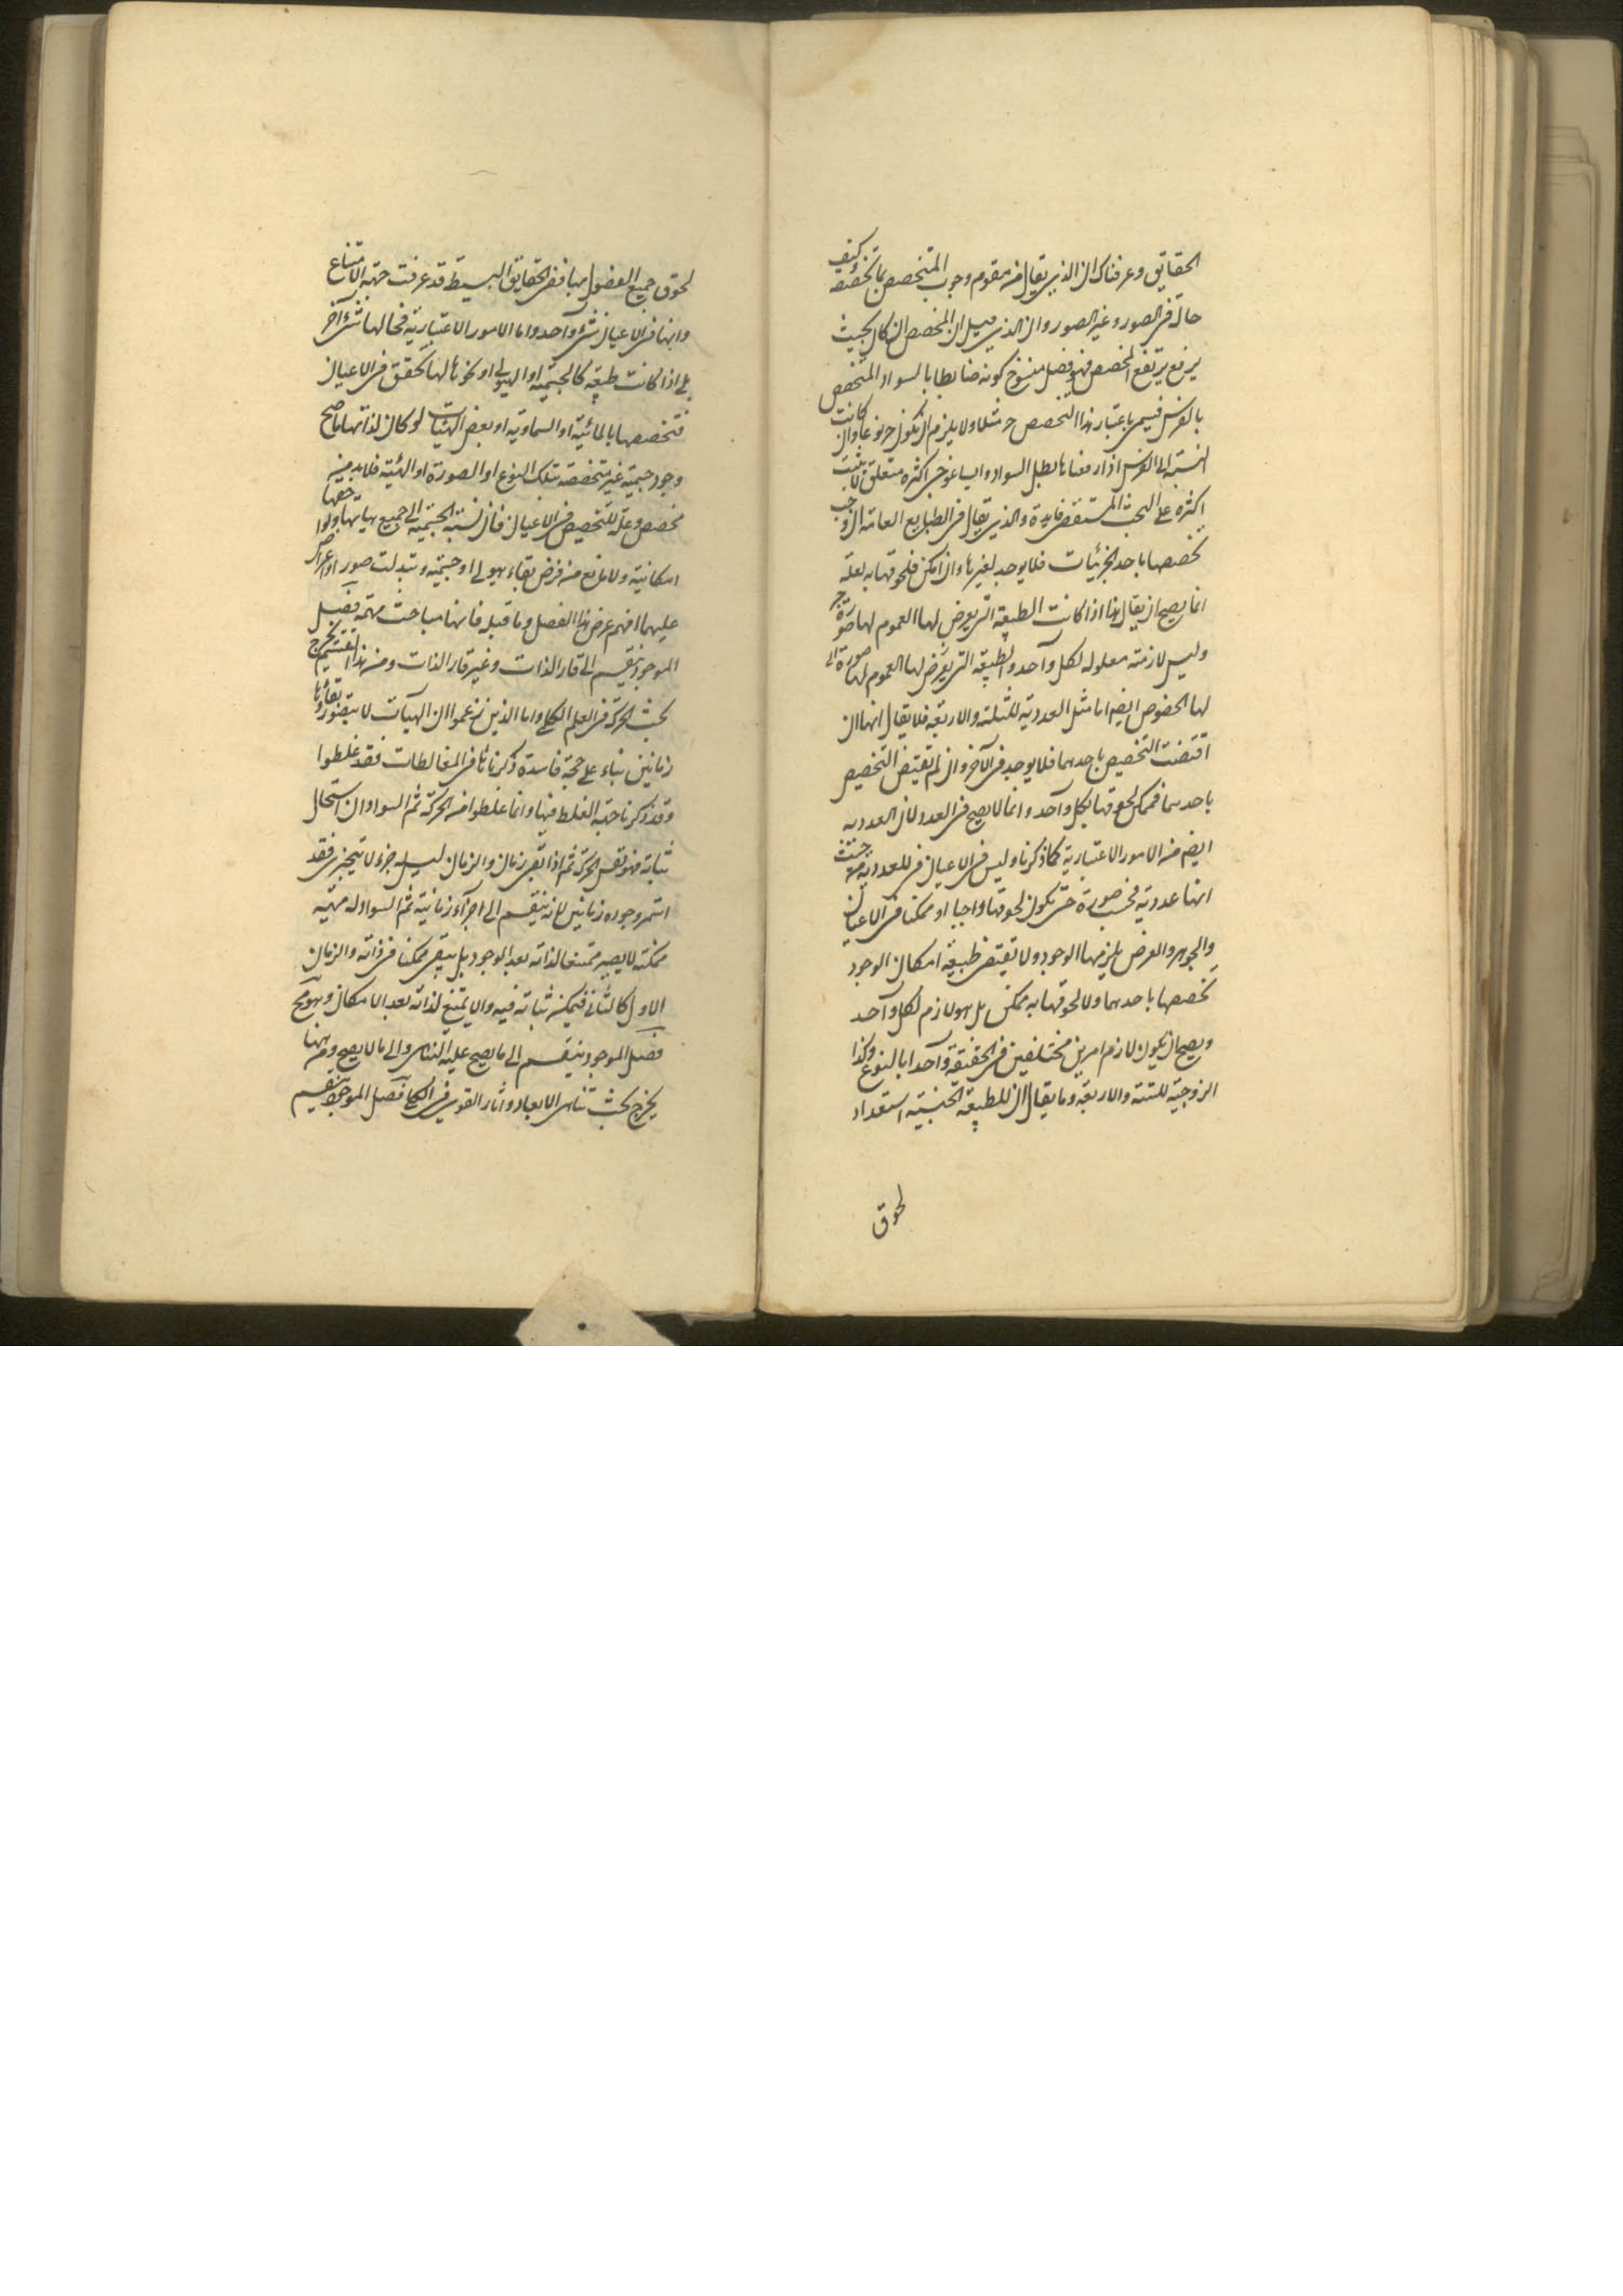 الحقايق وعرفناك ان الذي يقال من مقوم وجوب المتخصص بما تخصصه وكيف
حاله في الصور وغير الصور وان الذي قيل ان المخصص ان كان بحيث
يرفع يرتفع المخصص فهو فصل منسوخ كونه ضابطا بالسواد المتخصص
بالفرس فيسمى باعتبار هذا التخصص مثلا ولا يلزم ان يكون نوعا وان كانت
النسبة الى الفرس اذا رفعناها بطل السواد وايساغوجى اكثره متعلق
اكثره على البحث المستقصى فايدة والذي يقال في الطبايع العامة ان وجب
تخصصها باحد الجزئيات فلا يوجد لغيرها وان امكن فلحوقها به لعلة
انما يصح ان يقال هذا اذا كانت الطبيعة التي يعرض لها العموم لها صورة
وليس لازمة معلولة لكل واحد والطبيعة التي يعرض لها العموم لها صورة
لها الخصوص ايضا اما مثل العددية للثلثة والاربعة فلا يقال انها ان
اقتضت التخصيص باحدهما فلا يوجد في الآخر وان لم تقتض التخصيص
باحدهما فممكن لحوقها بكل واحد وانما لا يصح في العدد لان العددية
ايضا من الامور الاعتبارية كما ذكرنا وليس في الاعيان للعددية من حيث
انها عددية بحسب صورة حتى يكون لحوقها واجبا او ممكنا في الاعيان
والجوهر والعرض يلزمهما الوجود ولا تقتضي طبيعة امكان الوجود
تخصصها باحدهما ولا لحوقها به ممكن بل هو لازم لكل واحد
ويصح ان يكون لازم امرين مختلفين في الحقيقة واحدا بالنوع وكذا
الزوجية للستة والاربعة وما يقال ان للطبيعة الجنسية استعداد
لحوق
لحوق جميع الفصول بها ففي الحقايق البسيطة قد عرفت جهة الامتناع
وانها في الاعيان شيء واحد واما الامور الاعتبارية فحالها شيء آخر
بلى اذا كانت طبيعة كالجسمية او الهيولى او نحوها لها تحقق في الاعيان
فتخصصها بالمائية او السماوية او بعض الهيئات لو كان لذاتها ما صح
وجود جسمية غير متخصصة بتلك النوع او الصورة او الهيئة فلا بد من
مخصص وعلة للتخصيص في الاعيان فان نسبة الجسمية الى جميع هيئاتها ولواحقها
امكانية ولا مانع من فرض بقاء هيولى او جسمية وتبدلت صور او اعراض
عليهما افهم غرض هذا الفصل وما قبله فانها مباحث مهمة فصل
الموجود ينقسم الى قار الذات وغير قار الذات ومن هذا التقسيم يخرج
بحث الحركة في العلم الكلي واما الذين زعموا ان الهيئات لا يتصور بقاؤها
زمانين بناء على حجة فاسدة ذكرناها في المغالطات فقد غلطوا
وقد ذكرنا جهة الغلط فيها وانما غلطوا من الحركة ثم السواد ان استحال
ثباته فهو نفس الحركة ثم اذا بقي زمان والزمان ليس جزء لا يتجزى فقد
استمر وجوده زمانين لانه ينقسم الى اجزاء زمانية ثم السواد له مهية
ممكنة لا يصير ممتنعا لذاته بعد الوجود بل يبقى ممكنا في ذاته والزمان
الاول كالثاني فيمكن ثباته فيه والا يمتنع لذاته بعد الامكان وهو مح
فصل الموجود ينقسم الى ما يصح عليه التناهى والى ما لا يصح ومن ههنا
يخرج بحث تناهى الابعاد وآثار القوى في الكلي فصل الموجود ينقسم